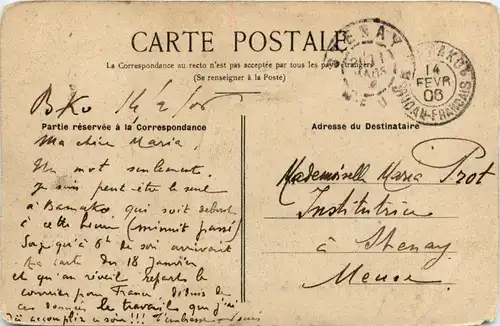 CARTE POSTALE
La Correspondance au recto n'est pas acceptée par tous les pays étrangers
(Se renseigner à la Poste)
STENAY
MEUSE
BAMAKO
14
FEVR
06
SOUDAN-FRANÇAIS
Bko
Partie réservée à la Correspondance
Ma chère Maria,
Un mot seulement.
Je suis peut être le seul
à Bamako qui soit debout
à cette heure (minuit passé)
Jusqu'à 6h de soir arrivait
ta carte du 18 Janvier
et qu'au réveil repartes le
courrier pour France
ces données le travail que j'ai
à accomplir ce soir!!! T'embrasse
Adresse du Destinataire
Mademoiselle Maria Prot
Institutrice
à Stenay
Meuse